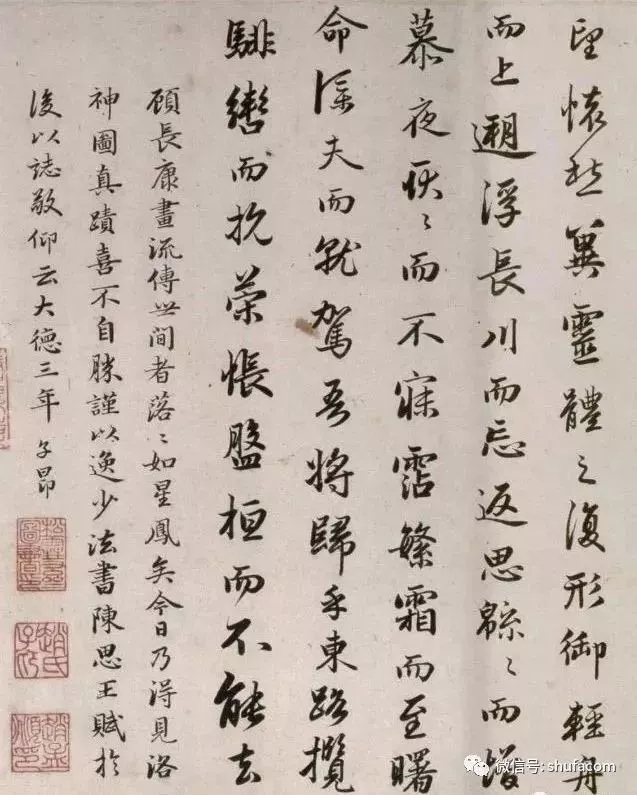 望懷愁冀靈體之復形御輕舟
而上遡浮長川而忘返思緜〻而增
慕夜耿〻而不寐霑繁霜而至曙
命僕夫而就駕吾將歸乎東路攬
騑轡而抗策悵盤桓而不能去
顧長康畫流傳世間者落〻如星鳳矣今日乃得見洛
神圖真蹟喜不自勝謹以逸少法書陳思王賦於
後以誌敬仰云大德三年 子昂
趙氏子昂
趙孟頫印
微信号: shufacom